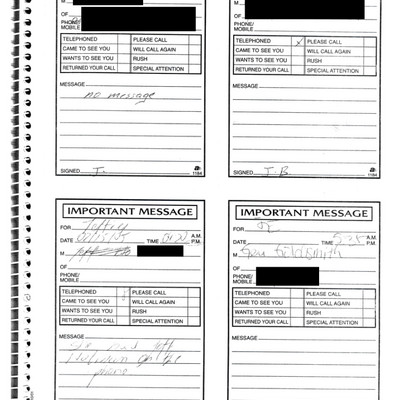 M
OF
PHONE/
MOBILE
TELEPHONED PLEASE CALL
CAME TO SEE YOU WILL CALL AGAIN
WANTS TO SEE YOU RUSH
RETURNED YOUR CALL SPECIAL ATTENTION
MESSAGE
no message
SIGNED J.
1184
M
OF
PHONE/
MOBILE
TELEPHONED X PLEASE CALL
CAME TO SEE YOU WILL CALL AGAIN
WANTS TO SEE YOU RUSH
RETURNED YOUR CALL SPECIAL ATTENTION
MESSAGE
SIGNED J.B.
1184
IMPORTANT MESSAGE
FOR Jeffrey
DATE TIME A.M.
P.M.
M
OF
PHONE/
MOBILE
TELEPHONED PLEASE CALL
CAME TO SEE YOU WILL CALL AGAIN
WANTS TO SEE YOU RUSH
RETURNED YOUR CALL SPECIAL ATTENTION
MESSAGE
the
phone
IMPORTANT MESSAGE
FOR JE
DATE TIME 5:25 A.M.
P.M.
M Goldsmith
OF
PHONE/
MOBILE
TELEPHONED PLEASE CALL
CAME TO SEE YOU WILL CALL AGAIN
WANTS TO SEE YOU RUSH
RETURNED YOUR CALL SPECIAL ATTENTION
MESSAGE